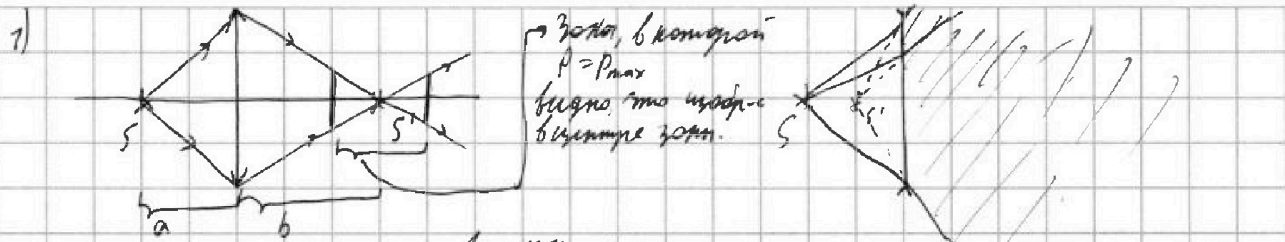 1)
Зона, в которой
P = Pmax
видно, что изобр-е
в центре зоны.
S
S'
a
b
S
S'